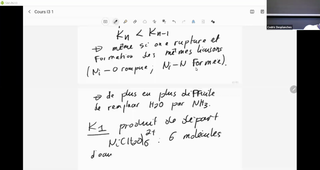 Cours I3 1
Kn < Kn-1
→ même si on a rupture et
Formation des mêmes liaisons
(Ni-O rompue, Ni-N Formée)
→ de plus en plus difficile
de remplacer H2O par NH3.
K1 produit de départ
Ni(H2O)6 2+ : 6 molécules
d'eau